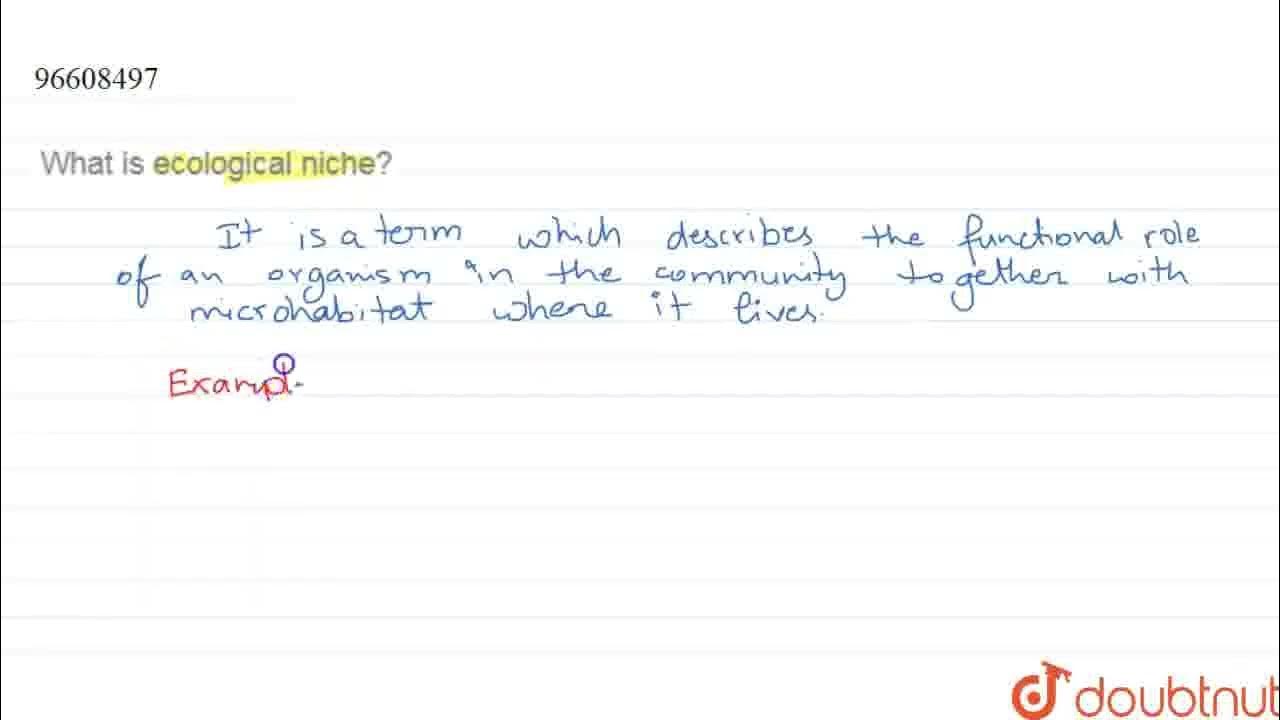 96608497
What is ecological niche?
It is a term which describes the functional role
of an organism in the community together with
microhabitat where it lives.
Exampl
doubtnut